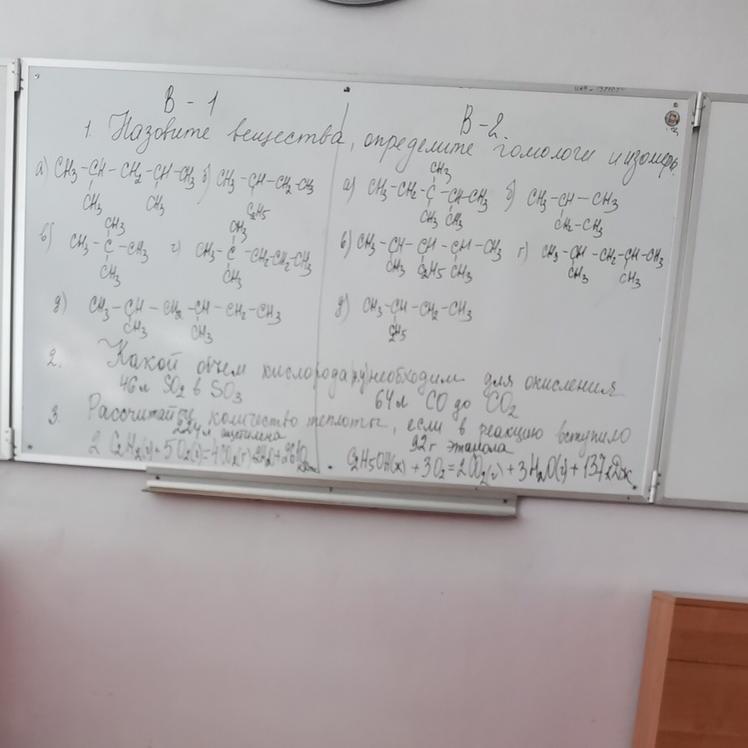 В - 1
В-2.
1. Назовите вещества, определите гомологи и изомеры.
а) CH3-CH-CH2-CH-CH3 б) CH3-CH-CH2-CH3
CH3 CH3 C2H5
CH3
а) CH3-CH2-C-CH-CH3 б) CH3-CH-CH3
CH3 CH3 CH2-CH3
CH3 CH3
в) CH3-C-CH3 г) CH3-C-CH2-CH2-CH3
CH3 CH3
в) CH3-CH-CH-CH-CH3 г) CH3-CH-CH2-CH-CH3
CH3 C2H5 CH3 CH3 CH3
д) CH3-CH-CH2-CH-CH2-CH3
CH3 CH3
д) CH3-CH-CH2-CH3
C2H5
2. Какой объем кислорода (н.у) необходим для окисления
46л SO2 в SO3 64л CO до CO2
3. Рассчитайте количество теплоты, если в реакцию вступило
224л ацетилена 92г этанола
2 C2H2(г)+5O2(г)=4CO2(г)
C2H5OH(ж)+3O2=2CO2(г)+3H2O(г)+1374кДж